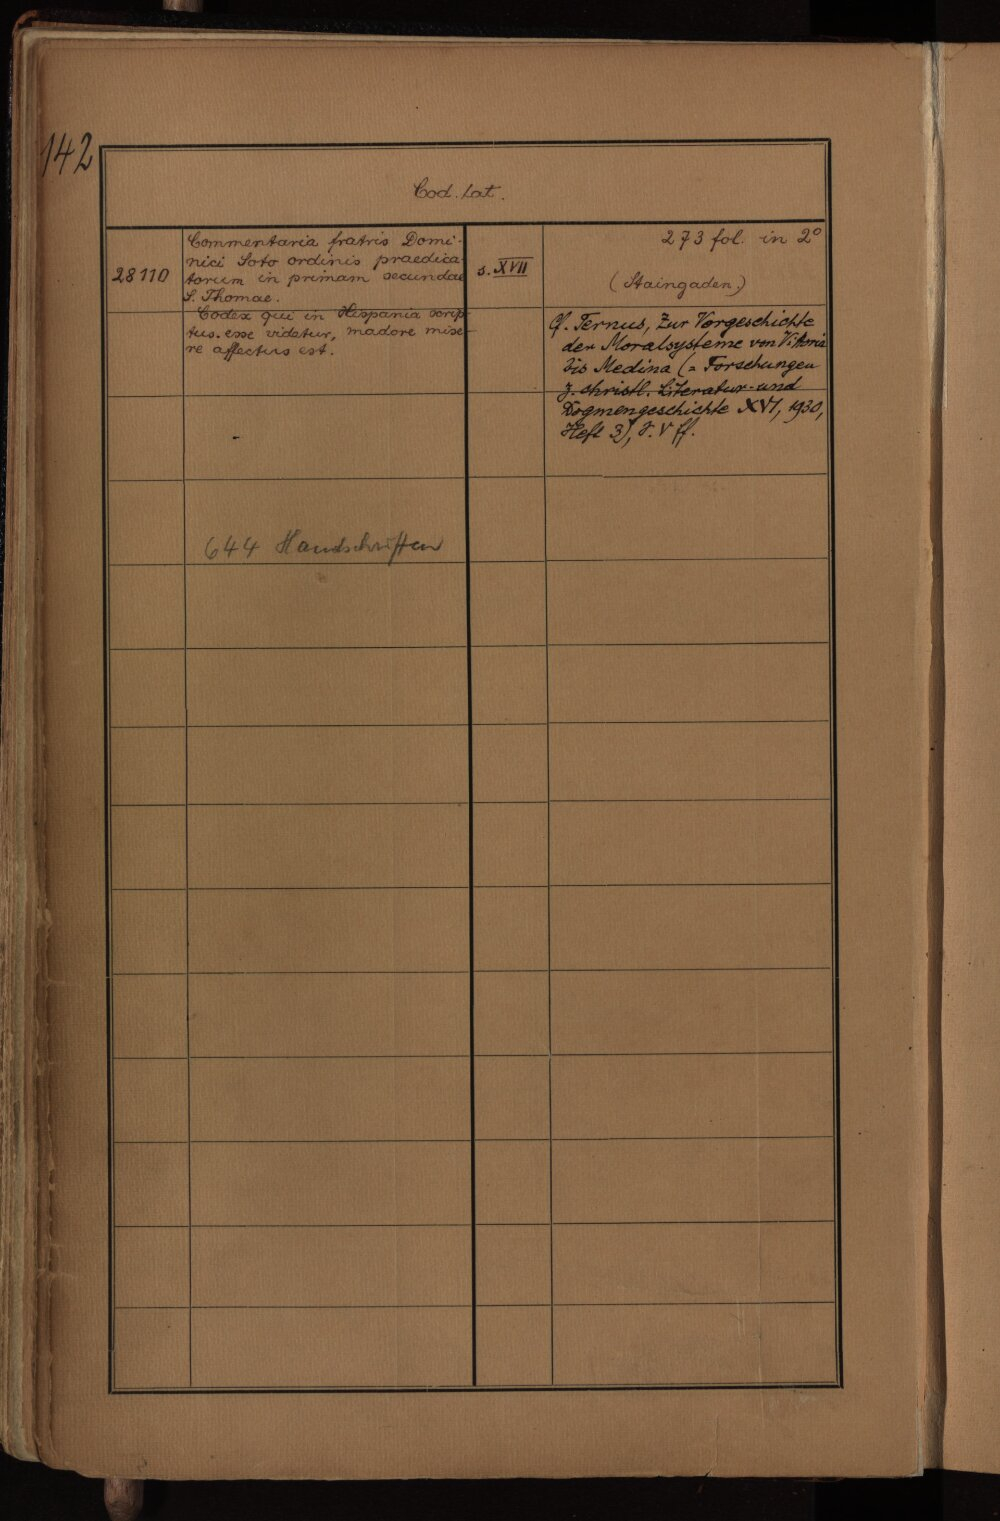 142
Cod. lat.
28110
Commentaria fratris Domi-
nici Soto ordinis praedica-
torum in primam secundae
S. Thomae.
Codex qui in Hispania scrip-
tus esse videtur, madore mise-
re affectus est.
s. XVII
273 fol. in 2°
(Staingaden.)
Cf. Ternus, Zur Vorgeschichte
der Moralsysteme von Vitoria
bis Medina (= Forschungen
z. christl. Literatur- und
Dogmengeschichte XVI, 1930,
Heft 3), S. V ff.
644 Handschriften